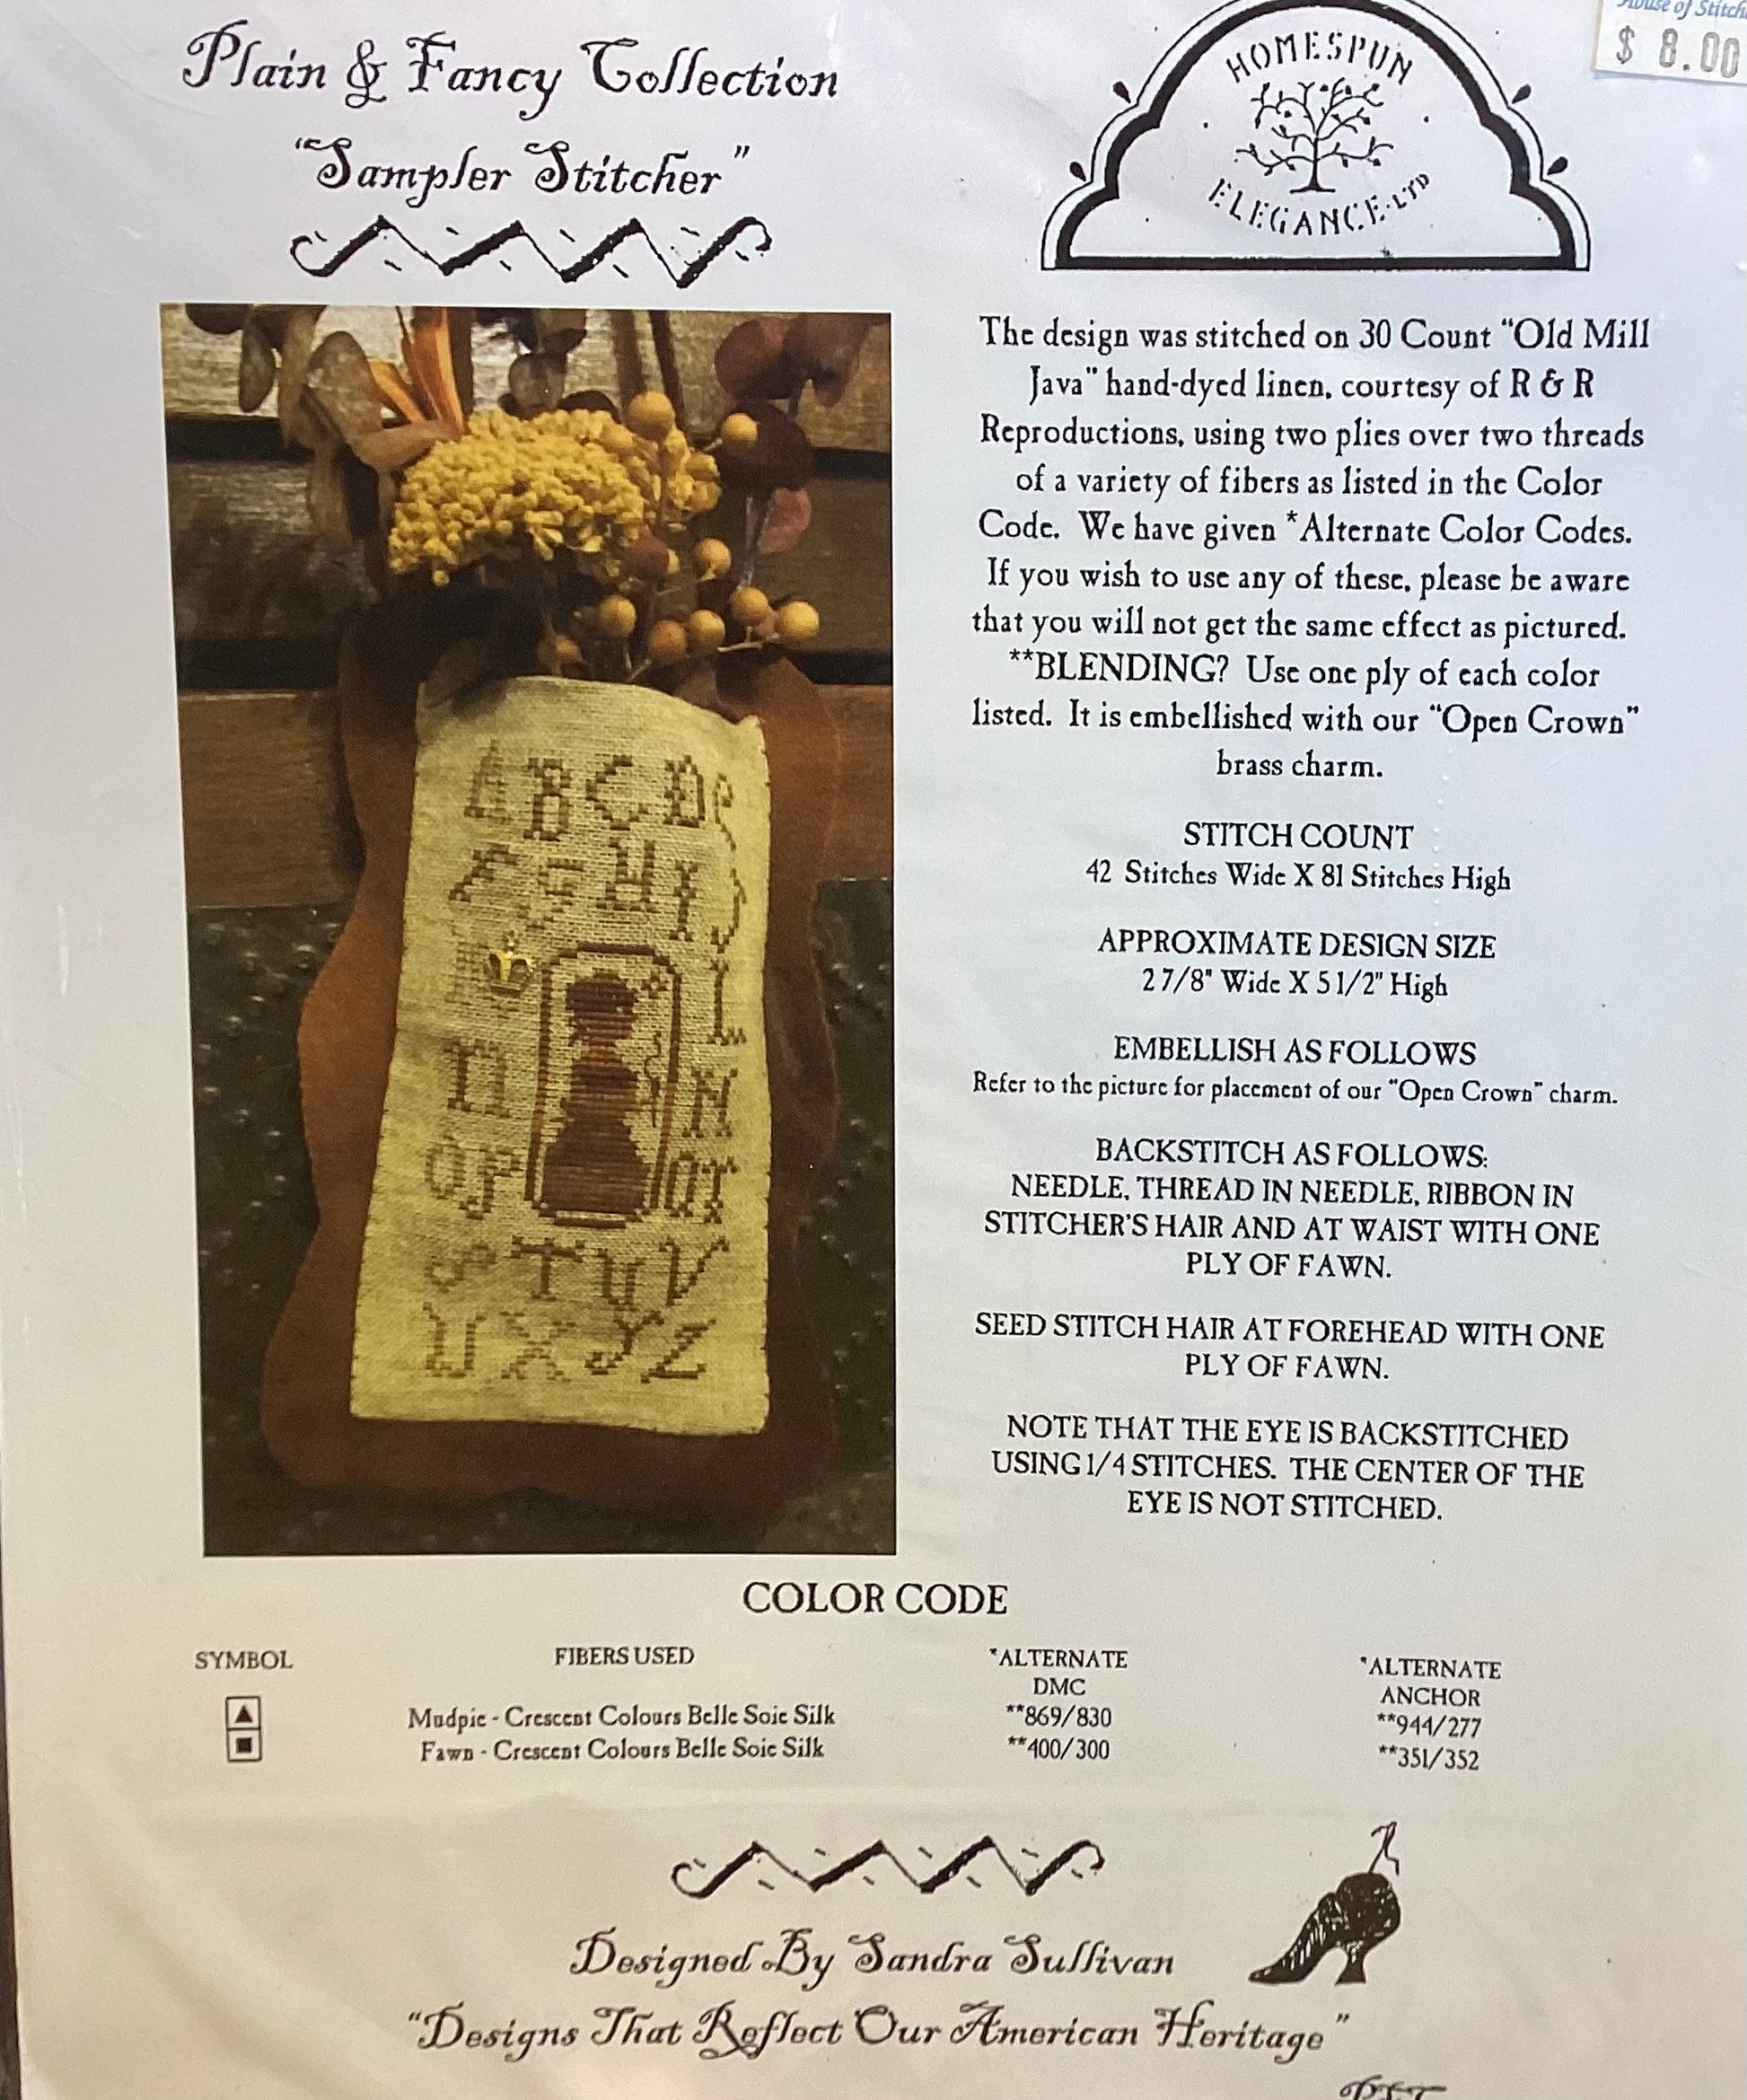 Plain & Fancy Collection
"Sampler Stitcher"
HOMESPUN
ELEGANCE·LTD
House of Stitch
$ 8.00
The design was stitched on 30 Count "Old Mill
Java" hand-dyed linen, courtesy of R & R
Reproductions, using two plies over two threads
of a variety of fibers as listed in the Color
Code. We have given *Alternate Color Codes.
If you wish to use any of these, please be aware
that you will not get the same effect as pictured.
**BLENDING? Use one ply of each color
listed. It is embellished with our "Open Crown"
brass charm.
STITCH COUNT
42 Stitches Wide X 81 Stitches High
APPROXIMATE DESIGN SIZE
2 7/8" Wide X 5 1/2" High
EMBELLISH AS FOLLOWS
Refer to the picture for placement of our "Open Crown" charm.
BACKSTITCH AS FOLLOWS:
NEEDLE, THREAD IN NEEDLE, RIBBON IN
STITCHER'S HAIR AND AT WAIST WITH ONE
PLY OF FAWN.
SEED STITCH HAIR AT FOREHEAD WITH ONE
PLY OF FAWN.
NOTE THAT THE EYE IS BACKSTITCHED
USING 1/4 STITCHES. THE CENTER OF THE
EYE IS NOT STITCHED.
A B C D e
F G H I J
L
N
O P Q R
S T U V
X Y Z
COLOR CODE
SYMBOL FIBERS USED *ALTERNATE DMC *ALTERNATE ANCHOR
Mudpie - Crescent Colours Belle Soie Silk **869/830 **944/277
Fawn - Crescent Colours Belle Soie Silk **400/300 **351/352
Designed By Sandra Sullivan
"Designs That Reflect Our American Heritage"